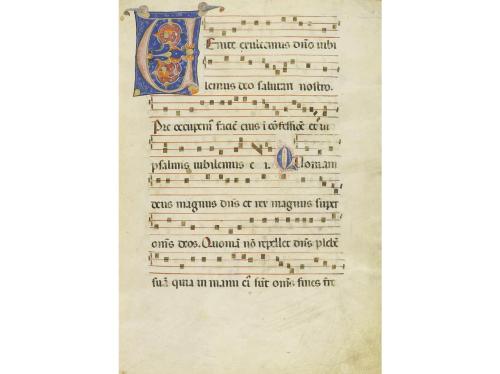 Uenite exultemus dn̄o iubi
lemus deo salutari nostro.
Pre occupem̄ faciē eius i cōfessiōe et in
psalmis iubilemus e i. Quoniam
deus magnus dn̄s et rex magnus super
om̄s deos. Quoniā nō repellet dn̄s plebē
suā quia in manu ei᷒ sūt om̄s fines tre